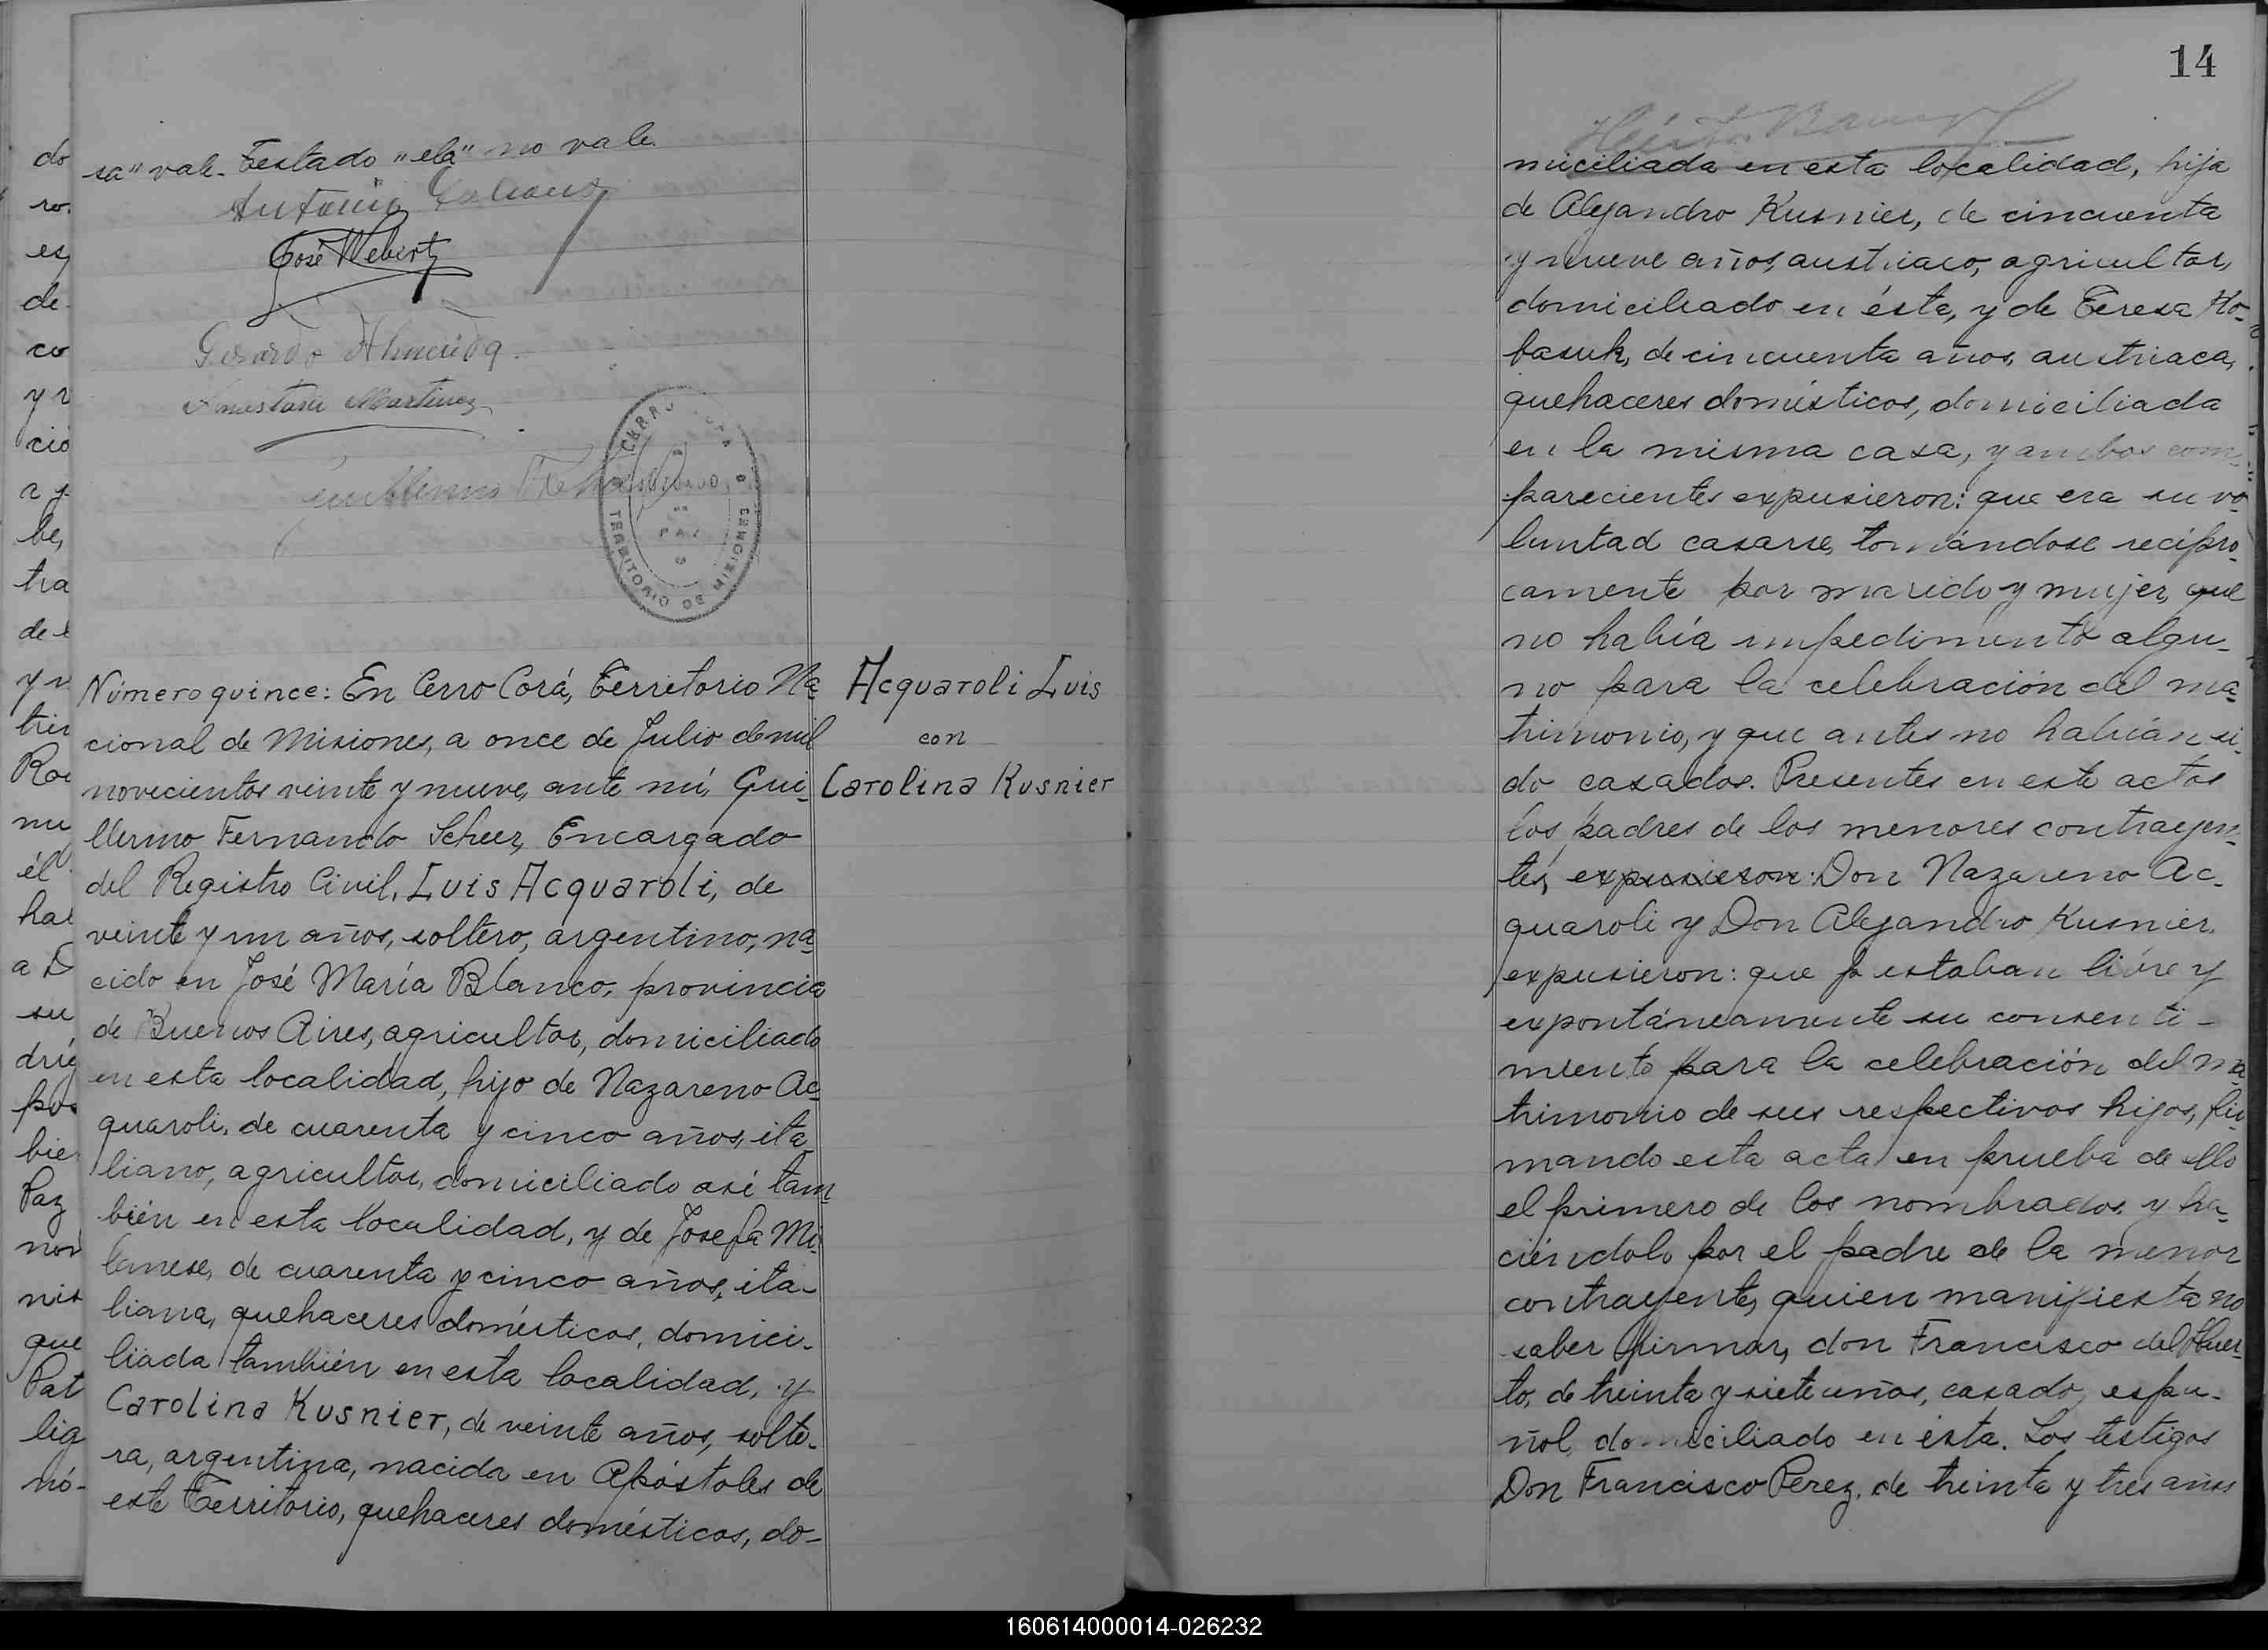 sa" vale. Testado "ela" no vale.
Antonio
José Webert
Gerardo Almeida
Anastasio Martinez
Guillermo
CERRO CORA
PAZ
TERRITORIO DE MISIONES
Número quince: En Cerro Corá, Territorio Na-
cional de Misiones, a once de Julio de mil
novecientos veinte y nueve, ante mí, Gui-
llermo Fernando Scheer, Encargado
del Registro Civil, Luis Acquaroli, de
veinte y un años, soltero, argentino, na-
cido en José María Blanco, provincia
de Buenos Aires, agricultor, domiciliado
en esta localidad, hijo de Nazareno Ac-
quaroli, de cuarenta y cinco años, ita-
liano, agricultor, domiciliado así tam-
bién en esta localidad, y de Josefa Mi-
lanese, de cuarenta y cinco años, ita-
liana, quehaceres domésticos, domici-
liada también en esta localidad, y
Carolina Kusnier, de veinte años, solte-
ra, argentina, nacida en Apóstoles de
este Territorio, quehaceres domésticos, do-
Acquaroli Luis
con
Carolina Kusnier
14
miciliada en esta localidad, hija
de Alejandro Kusnier, de cincuenta
y nueve años, austriaco, agricultor,
domiciliado en ésta, y de Teresa Ho-
basuk, de cincuenta años, austriaca,
quehaceres domésticos, domiciliada
en la misma casa, y ambos com-
parecientes expusieron: que era su vo-
luntad casarse, tomándose recípro-
camente por marido y mujer, que
no había impedimento algu-
no para la celebración del ma-
trimonio, y que antes no habían si-
do casados. Presentes en este actos
los padres de los menores contrayen-
tes, expusieron: Don Nazareno Ac-
quaroli y Don Alejandro Kusnier,
expusieron: que p estaban libre y
expontáneamente su consenti-
miento para la celebración del ma-
trimonio de sus respectivos hijos, fir-
mando esta acta en prueba de ello
el primero de los nombrados y ha-
ciéndolo por el padre de la menor
contrayente, quien manifiesta no
saber firmar, don Francisco del Huer-
to, de treinta y siete años, casado, espa-
ñol, domiciliado en ésta. Los testigos
Don Francisco Perez, de treinta y tres años
160614000014-026232